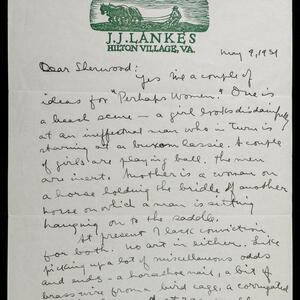 J.J. LANKES
HILTON VILLAGE, VA.
May 9, 1931
Dear Sherwood:
Yes, a couple of
ideas for "Perhaps Women." One is
a beach scene — a girl looks disdainfully
at an ineffectual man who in turn is
staring at a buxom lassie. A couple
of girls are playing ball. The men
are inert. Another is a woman on
a horse holding the bridle of another
horse on which a man is sitting
hanging on to the saddle.
At present I lack conviction
for both: no art in either. Like
picking up a lot of miscellaneous odds
and ends — a horseshoe nail, a bit of
brass wire from a bird cage, a corrugated